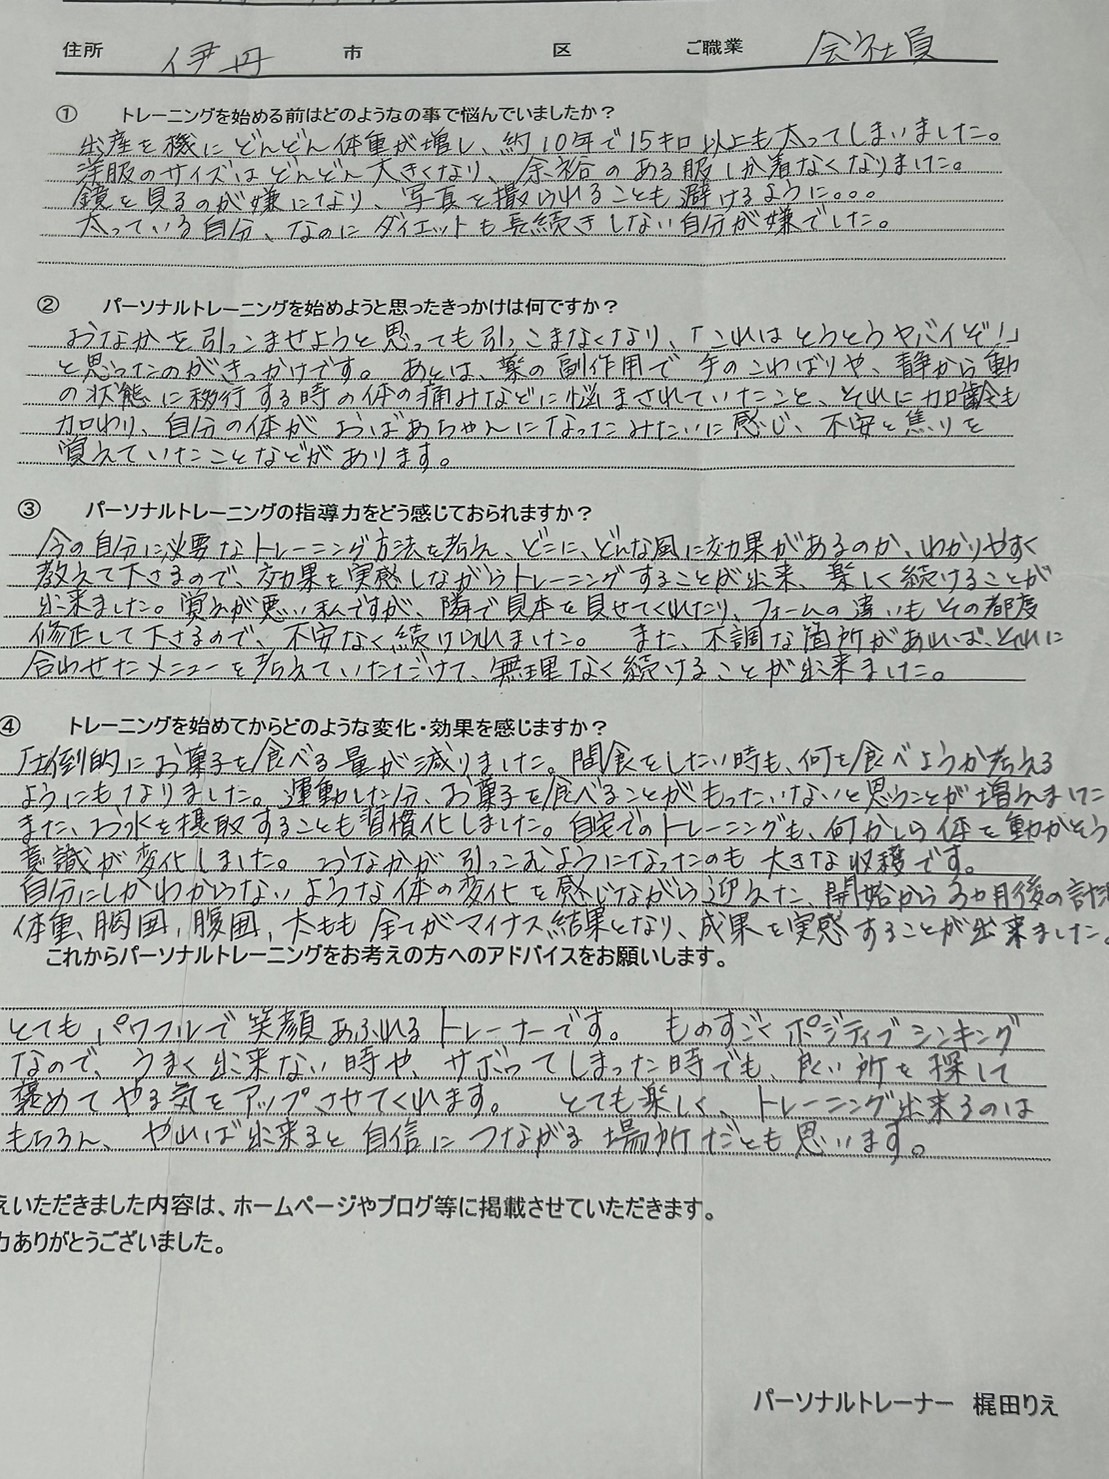 住所 伊丹 市 区 ご職業 会社員
① トレーニングを始める前はどのようなの事で悩んでいましたか？
出産を機にどんどん体重が増し、約10年で15キロ以上も太ってしまいました。
洋服のサイズはどんどん大きくなり、余裕のある服しか着なくなりました。
鏡を見るのが嫌になり、写真を撮られることも避けるように。。。
太っている自分、なのにダイエットも長続きしない自分が嫌でした。
② パーソナルトレーニングを始めようと思ったきっかけは何ですか？
おなかを引っこませようと思っても引っこまなくなり、「これはとうとうヤバイぞ！」
と思ったのがきっかけです。 あとは、薬の副作用で手のこわばりや、静から動
の状態に移行する時の体の痛みなどに悩まされていたこと、それに加齢も
加わり、自分の体がおばあちゃんになったみたいに感じ、不安と焦りを
覚えていたことなどがあります。
③ パーソナルトレーニングの指導力をどう感じておられますか？
今の自分に必要なトレーニング方法を考え、どこに、どんな風に効果があるのか、わかりやすく
教えて下さるので、効果を実感しながらトレーニングすることが出来、楽しく続けることが
出来ました。覚えが悪いんですが、隣で見本を見せてくれたり、フォームの違いもその都度
修正して下さるので、不安なく続けられました。 また、不調な箇所があれば、それに
合わせたメニューを考えていただけて、無理なく続けることが出来ました。
④ トレーニングを始めてからどのような変化・効果を感じますか？
圧倒的にお菓子を食べる量が減りました。間食をしたい時も、何を食べようか考える
ようにもなりました。運動した分、お菓子を食べることがもったいないと思うことが増えました
また、お水を摂取することも習慣化しました。自宅でのトレーニングも、何かしら体を動かそう
意識が変化しました。 おなかが引っこむようになったのも大きな収穫です。
自分にしかわからないような体の変化を感じながら迎えた、開始から3カ月後の計測
体重、胸囲、腹囲、太もも全てがマイナス結果となり、成果を実感することが出来ました。
これからパーソナルトレーニングをお考えの方へのアドバイスをお願いします。
とてもパワフルで笑顔あふれるトレーナーです。 ものすごくポジティブシンキング
なので、うまく出来ない時や、サボってしまった時でも、良い所を探して
褒めてやる気をアップさせてくれます。 とても楽しく、トレーニング出来るのは
もちろん、やれば出来ると自信につながる場所だとも思います。
えいただきました内容は、ホームページやブログ等に掲載させていただきます。
力ありがとうございました。
パーソナルトレーナー 梶田りえ